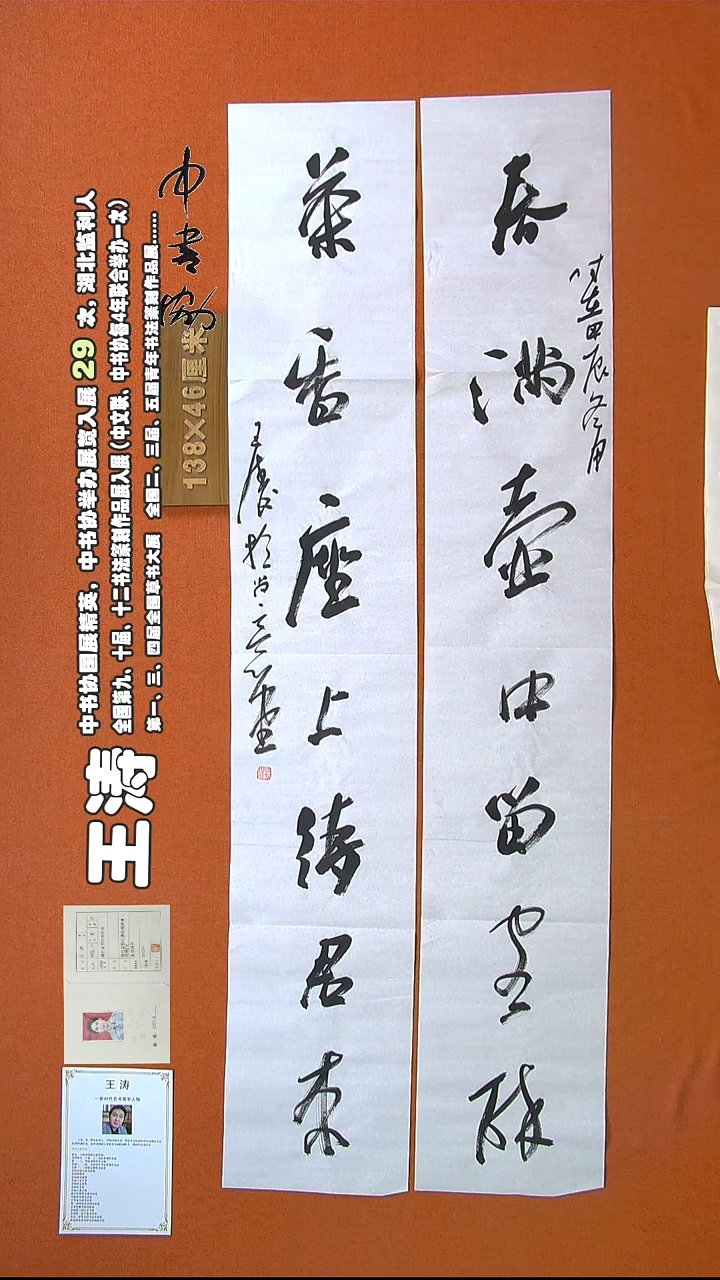 春满壶中留客醉
时在甲辰冬月
茶香座上待君来
王涛于尚意堂
中书协
138×46厘米
中书协国展精英，中书协举办展览入展29次，湖北监利人
全国第九、十届、十二书法篆刻作品展入展（中文联、中书协每4年联合举办一次）
第一、三、四届全国草书大展 全国二、三届、五届青年书法篆刻作品展……
王涛
王 涛